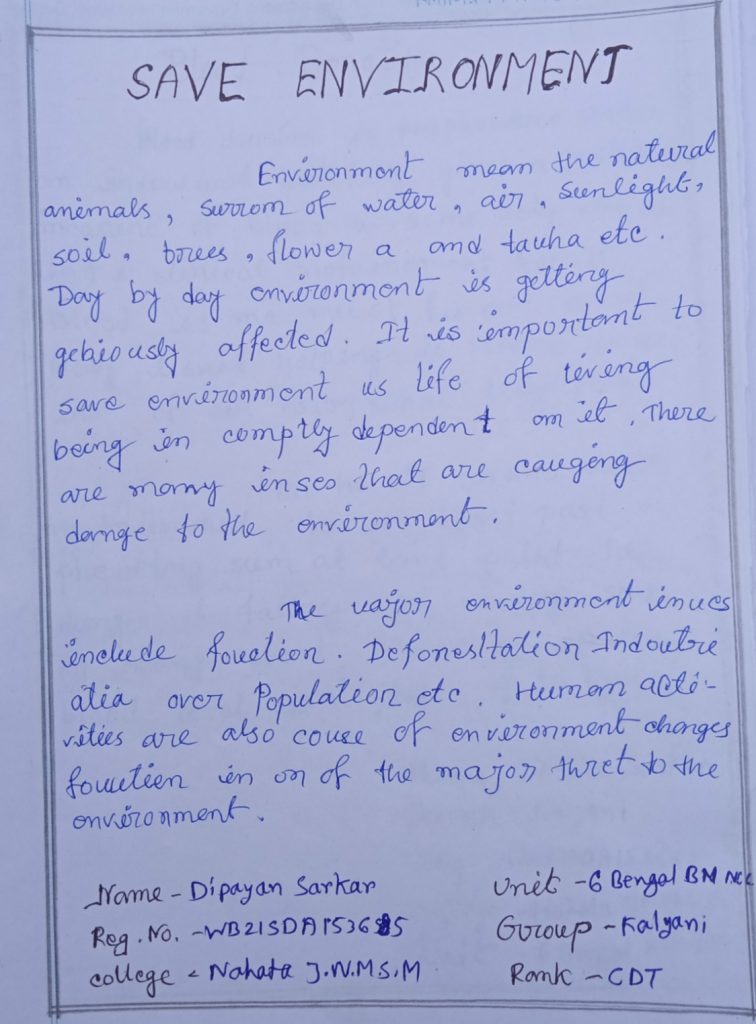 SAVE ENVIRONMENT
Environment mean the natural
animals, surrom of water, air, sunlight,
soil, trees, flower a and tauha etc.
Day by day environment is getting
gebiously affected. It is important to
save environment us life of living
being in comptly dependent on it. There
are many inses that are cauging
damge to the environment.
The vajor environment inues
include fouction. Deforestation Indoutrie
atia over Population etc. Human acti-
vities are also couse of environment changes
fouction in on of the major thret to the
environment.
Name - Dipayan Sarkar
Unit - 6 Bengal BN NCC
Reg. No. - WB21SDA1536 5
Group - Kalyani
college - Nahata J.N.M.S.M
Rank - CDT